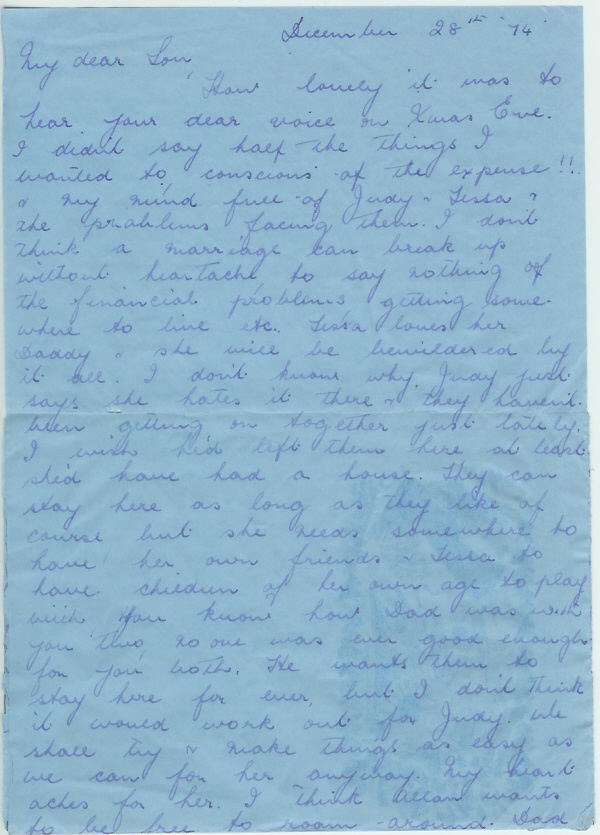 December 28th '74
My dear Son,
How lovely it was to
hear your dear voice on Xmas Eve.
I didn't say half the things I
wanted to conscious of the expense!!
& my mind full of Judy & Tessa &
the problems facing them. I don't
think a marriage can break up
without heartache to say nothing of
the financial problems getting some-
where to live etc. Tessa loves her
Daddy & she will be bewildered by
it all. I don't know why. Judy just
says she hates it there & they haven't
been getting on together just lately.
I wish he'd left them here at least
she'd have had a house. They can
stay here as long as they like of
course but she needs somewhere to
have her own friends & Tessa to
have children of her own age to play
with. You know how Dad was with
you two no one was ever good enough
for you both. He wants them to
stay here for ever, but I don't think
it would work out for Judy. We
shall try & make things as easy as
we can for her anyway. My heart
aches for her. I think Allan wants
to be free to roam around. Dad